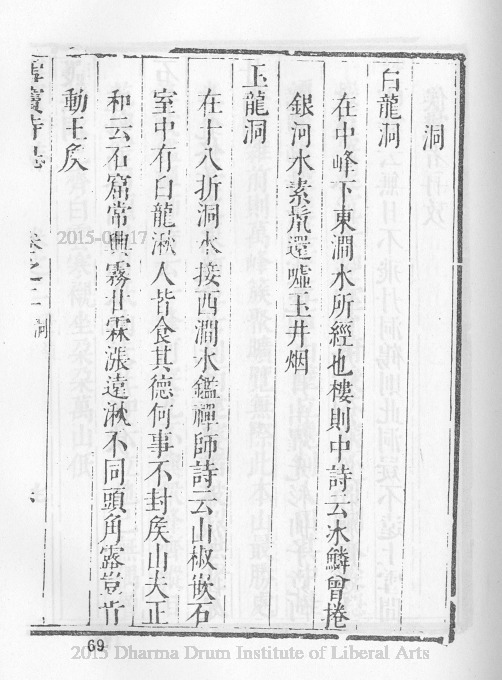 洞
白龍洞
在中峰下東澗水所經也樓則中詩云氷鱗曾捲
銀河水素𩬊還噓玉井烟
玉龍洞
在十八折洞水接西澗水鑑禪師詩云山椒嵌石
室中有白龍湫人皆食其德何事不封矦山夫正
和云石窟常興霧甘霖漲遠湫不同頭角露豈肯
動王矦
寺志 卷之二 洞
69
2015-03-17
2015 Dharma Drum Institute of Liberal Arts